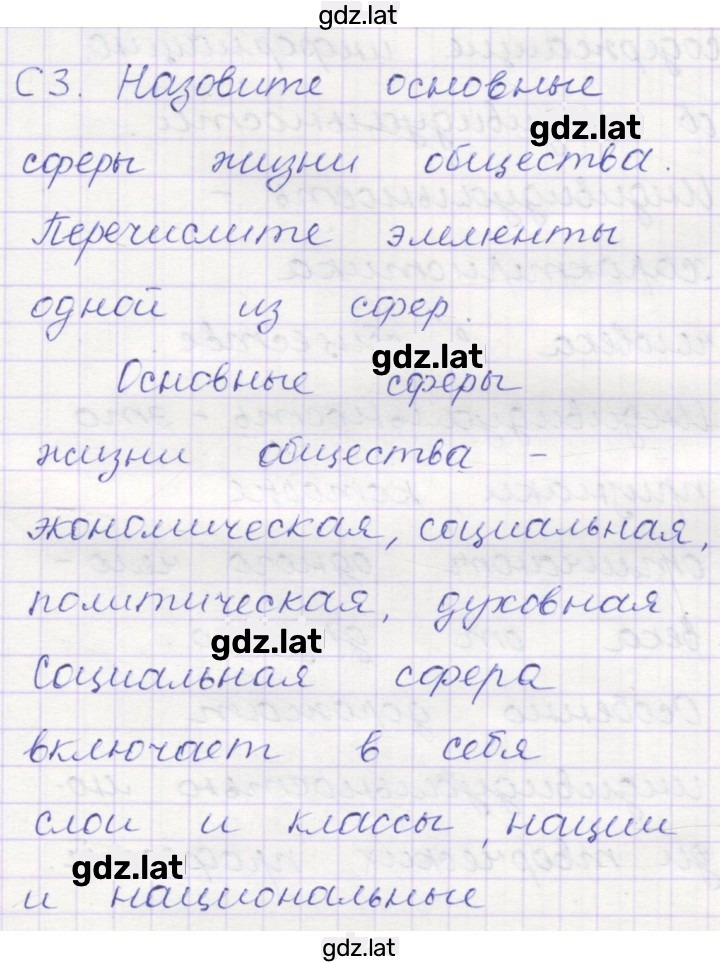 gdz.lat
С3. Назовите основные
gdz.lat
сферы жизни общества.
Перечислите элементы
одной из сфер.
gdz.lat
Основные сферы
жизни общества -
экономическая, социальная,
политическая, духовная.
gdz.lat
Социальная сфера
включает в себя
слои и классы, нации
gdz.lat
и национальные
gdz.lat